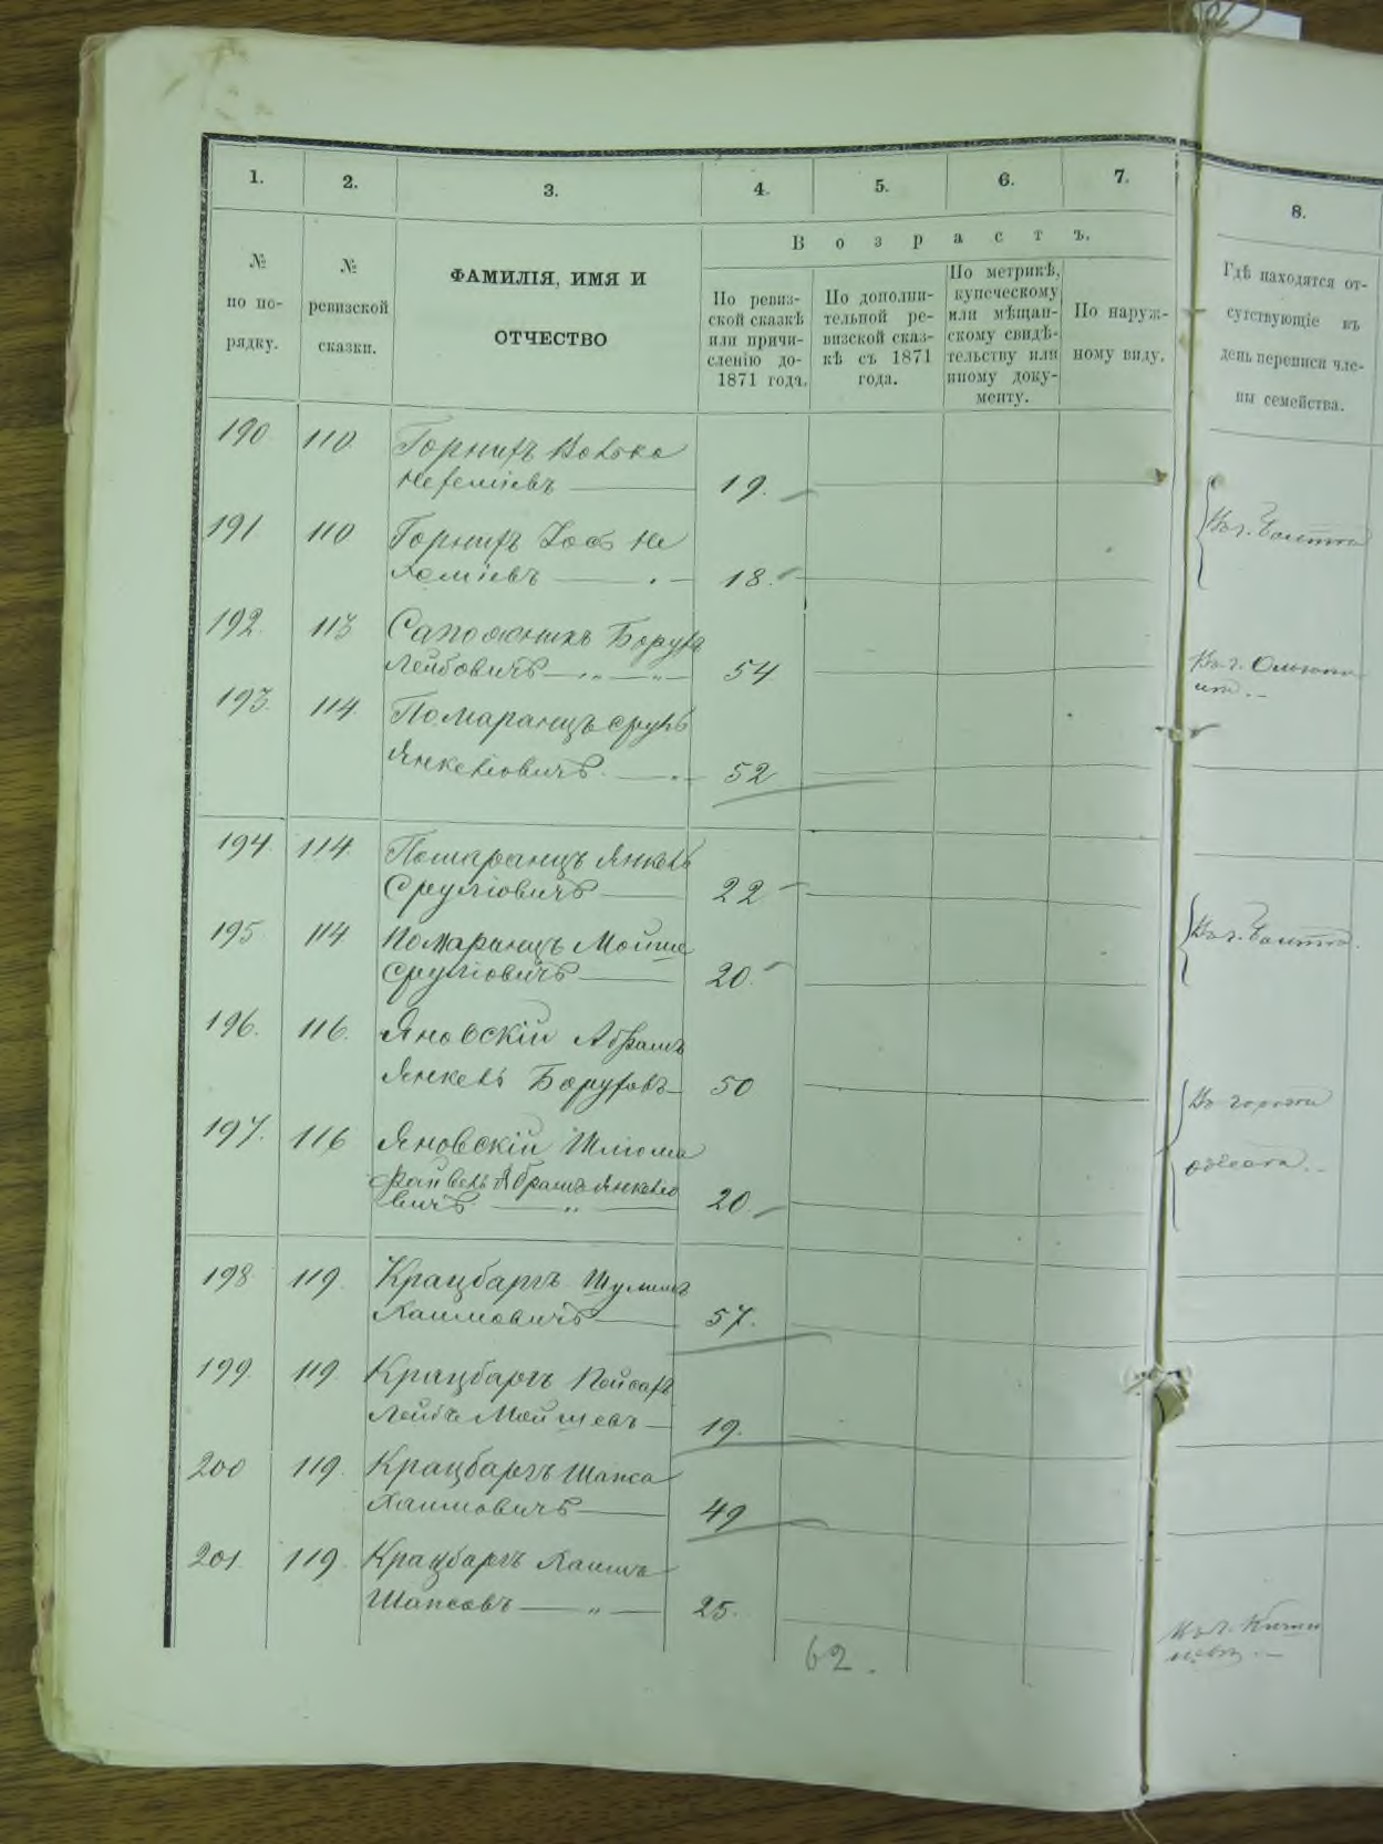 1. 2. 3. 4. 5. 6. 7. 8.
Возрастъ.
№ по по-рядку.
№ ревизской сказки.
ФАМИЛІЯ, ИМЯ И
ОТЧЕСТВО
По ревиз-
ской сказкѣ
или причи-
сленію до
1871 года.
По дополни-
тельной ре-
визской сказ-
кѣ съ 1871
года.
По метрикѣ,
купеческому
или мѣщан-
скому свидѣ-
тельству или
иному доку-
менту.
По наруж-
ному виду.
Гдѣ находятся от-
сутствующіе въ
день переписи чле-
ны семейства.
190 110 Горнихъ Волько
Нехеміевъ 19.
191 110 Горнихъ Іось Не
хеміевъ 18.
Въ г. Балтѣ
192 113 Сапожникъ Борухъ
Лейбовичъ 54
Въ г.
193. 114. Помаранцъ Сруль
Янкеліовичъ 52
194 114 Помаранцъ Янкель
Сруліовичъ 22
195 114 Помаранцъ Мойше
Сруліовичъ 20
Въ г. Балтѣ.
196. 116. Яновскій Абрамъ
Янкель Боруховъ 50
Въ городѣ
197. 116 Яновскій Шлiома
Файвель Абрамъ Янкеліо
вичъ 20
Одесса.
198 119. Крацбаргъ Шулимъ
Хаимовичъ 57.
199. 119. Крацбаргъ Пейсахъ
Лейбъ Мойшевъ 19.
200 119. Крацбаргъ Шапса
Хаимовичъ 49
201. 119. Крацбаргъ Хаимъ
Шапсовъ 25.
Въ г. Киши
невѣ.
62.